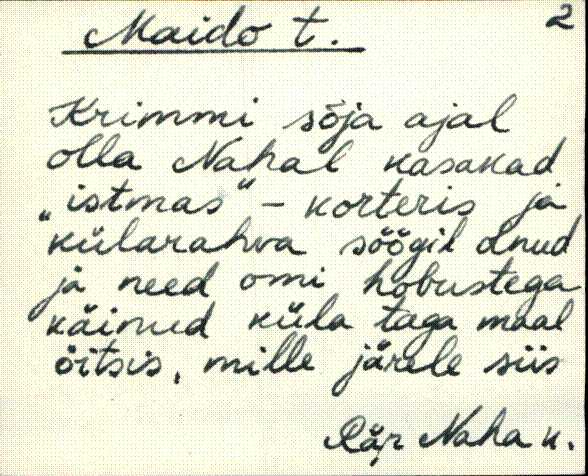 2
Maido t.
Krimmi sõja ajal
olla Nahal kasakad
„istmas“ – korteris ja
külarahva söögil olnud
ja need omi hobustega
käinud küla taga maal
öitsis, mille järele siis
Räp Naha k.